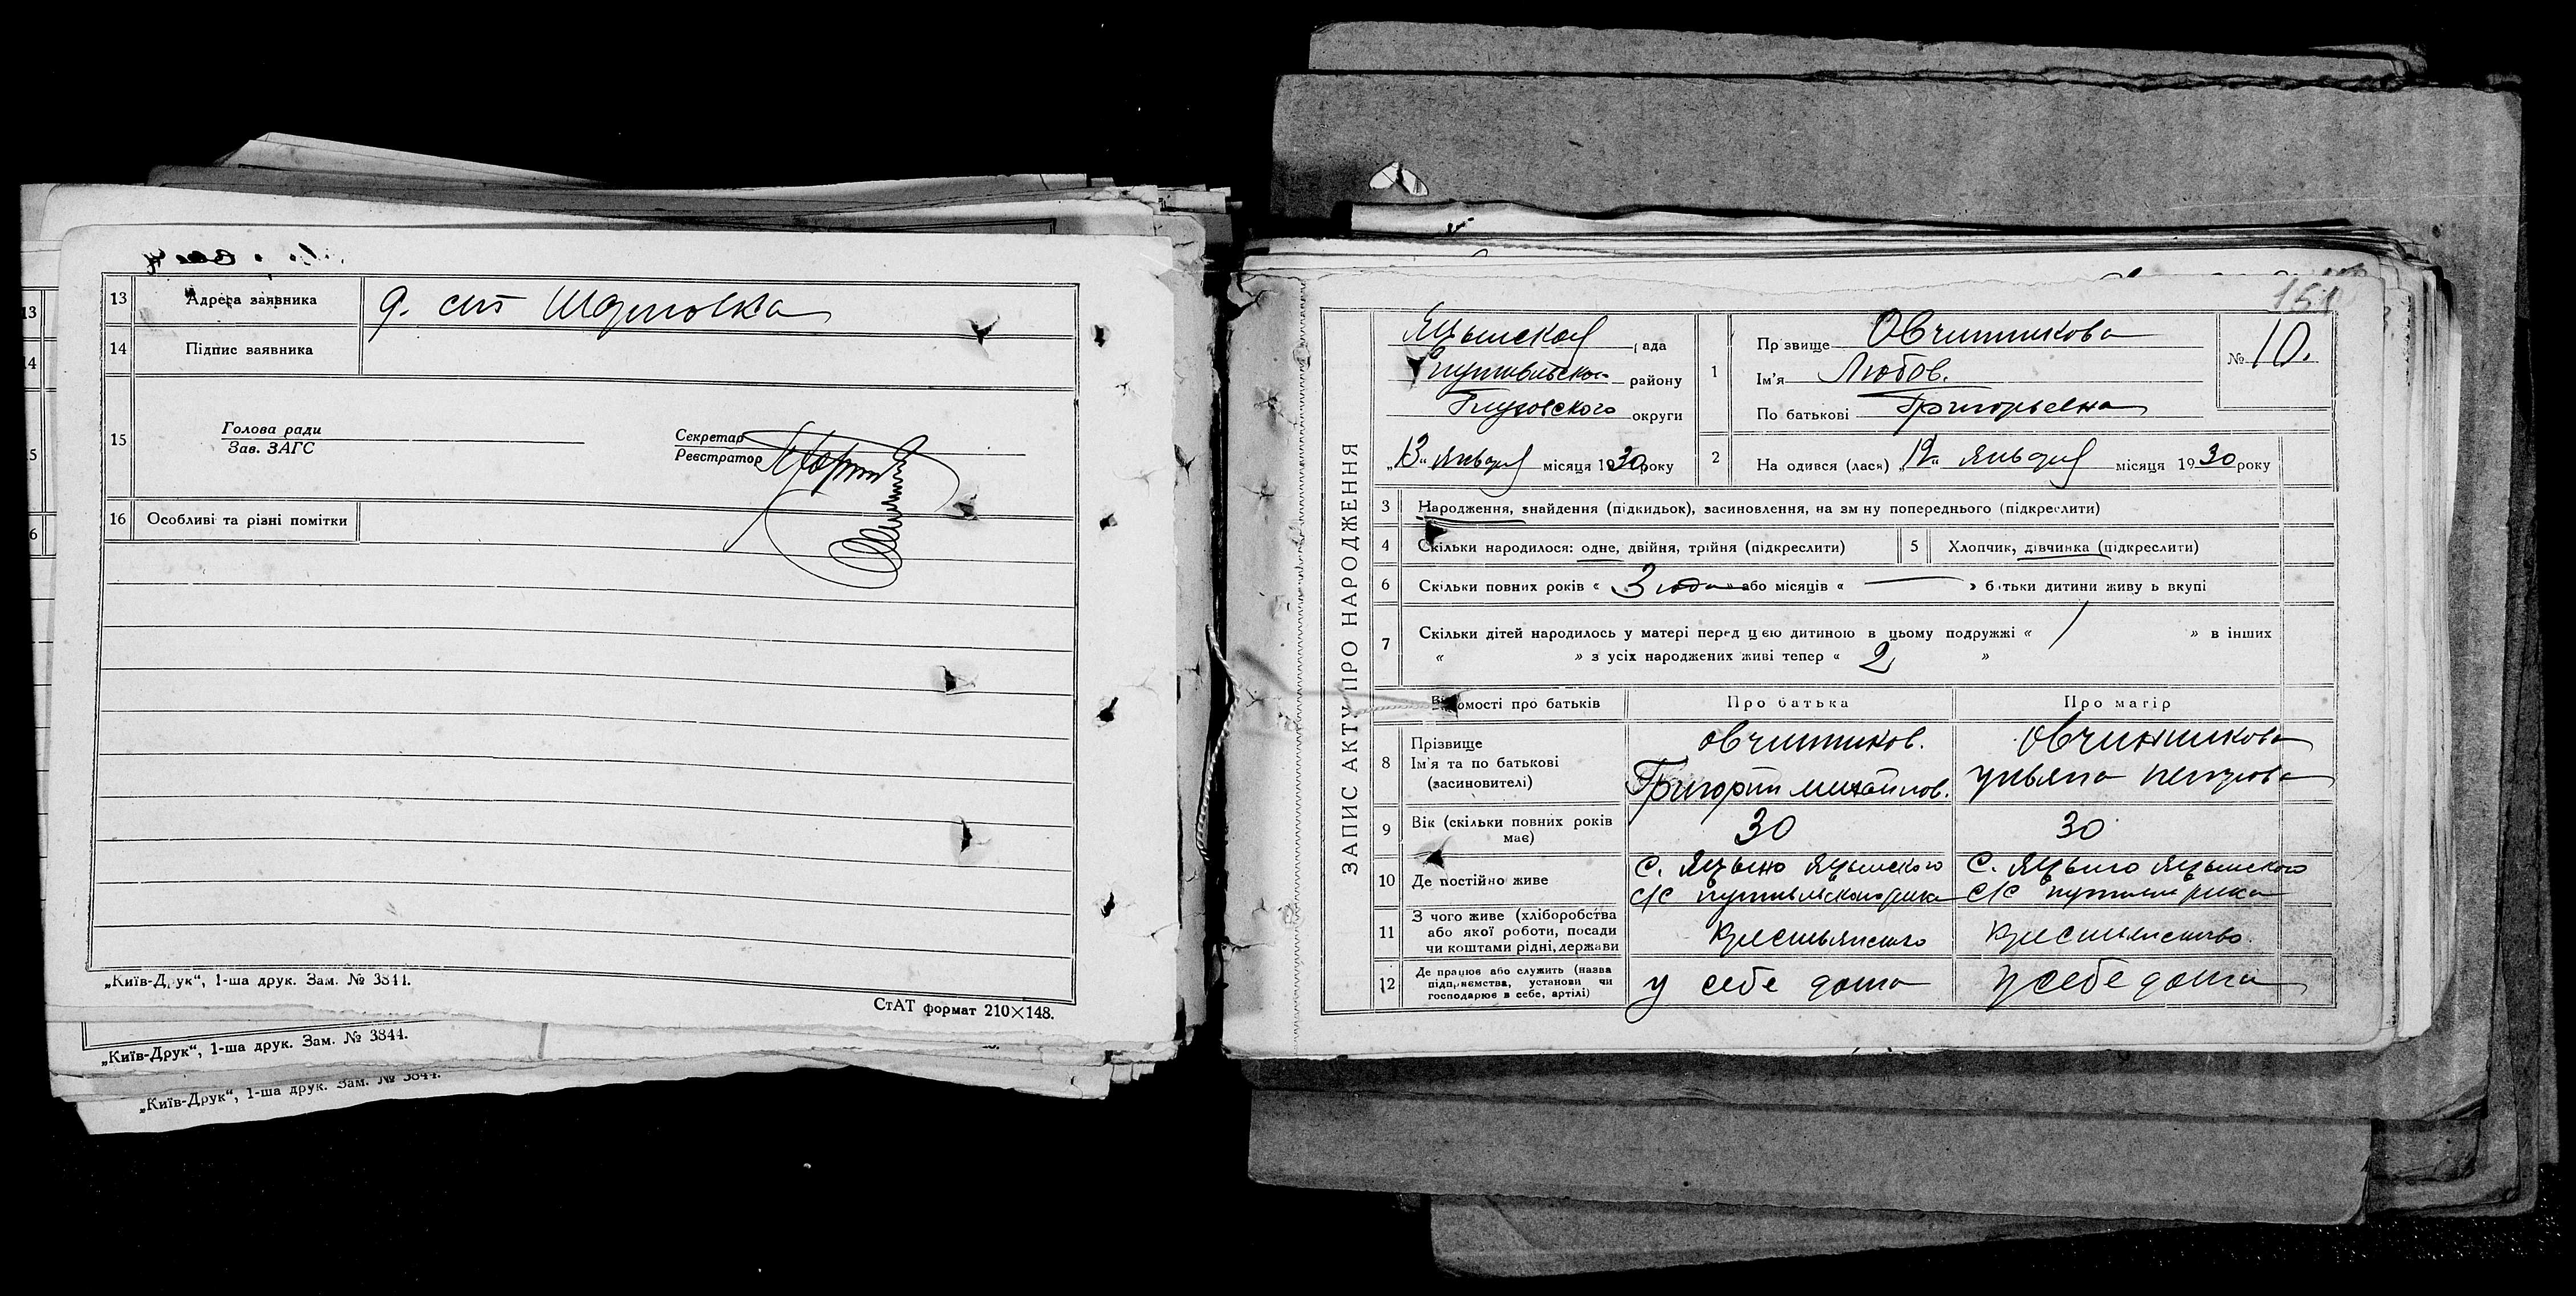 13 Адреса заявника
14 Підпис заявника
15 Голова ради
Зав. ЗАГС
Секретар
Реєстратор
16 Особливі та різні помітки
„Київ-Друк“, 1-ша друк. Зам. № 3844.
СтАТ формат 210×148.
„Київ-Друк“, 1-ша друк. Зам. № 3844.
„Київ-Друк“, 1-ша друк. Зам. № 3844.
151
ЗАПИС АКТУ ПРО НАРОДЖЕННЯ
Яцынская рада
Путивльского району
Глуховского округи
„13“ января місяця 1930 року
1 Прізвище Овчинникова
Ім'я Любов.
По батькові Григорьевна
№ 10.
2 На одився (лася) „12“ января місяця 1930 року
3 Народження, знайдення (підкидьок), засиновлення, на зм ну попереднього (підкреслити)
4 Скільки народилося: одне, двійня, трійня (підкреслити)
5 Хлопчик, дівчинка (підкреслити)
6 Скільки повних років « 3 года » або місяців « — » б тьки дитини живу ь вкупі
7 Скільки дітей народилось у матері перед цією дитиною в цьому подружжі « 1 » в інших
« » з усіх народжених живі тепер « 2 »
Відомості про батьків Про батька Про матір
8 Прізвище
Ім'я та по батькові
(засиновителі)
Овчинников.
Григорий Михайлов.
Овчинникова
Ульяна Петрова
9 Вік (скільки повних років має) 30 30
10 Де постійно живе
С. Яцыно Яцынского
с/с Путивльского р-на
С. Яцыно Яцынского
с/с
11 З чого живе (хліборобства
або якої роботи, посади
чи коштами рідні, держави
Крестьянство
Крестьянство.
12 Де працює або служить (назва
підприємства, установи чи
господарює в себе, артілі)
у себе дома
у себе дома